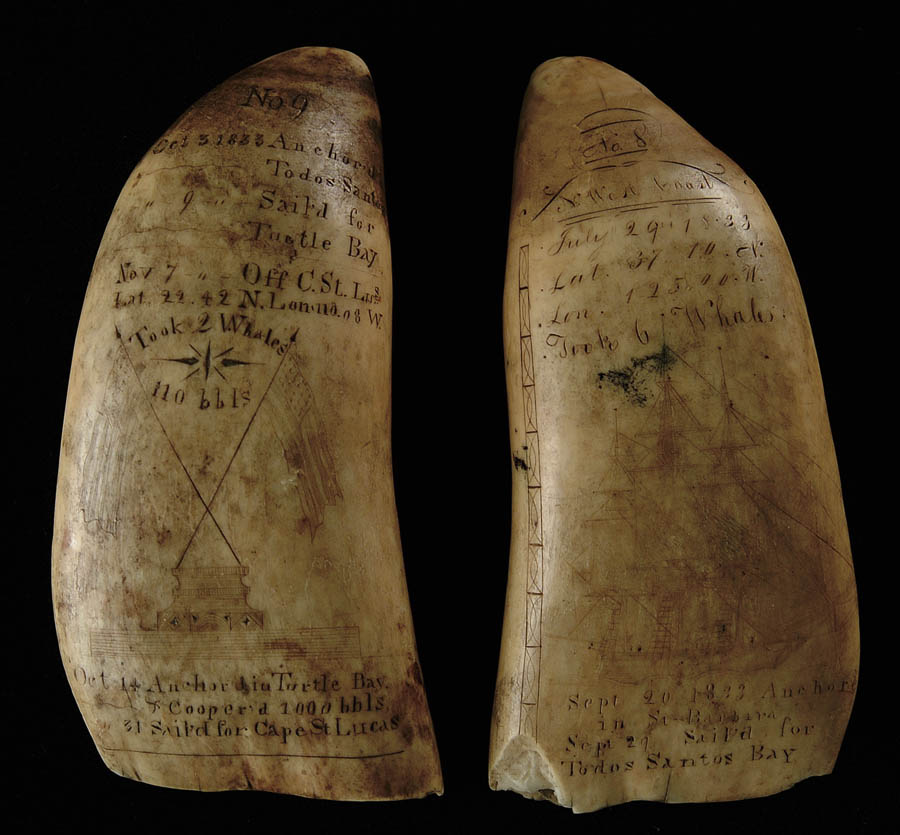 No 9
Oct 3 1833 Anchor'd
Todos Santos
" 9 " Sail'd for
Turtle Bay
Nov 7 " - Off C. St. Lucas
Lat. 22.42 N. Lon. 110.08 W.
Took 2 Whales
110 bbls
Oct 14 Anchor'd in Turtle Bay.
& Cooper'd 1000 bbls.
" 31 Sail'd for Cape St Lucas
No. 8
N. West Coast
July 29. 1833
Lat. 37 10. N.
Lon. 125.00 W.
Took 6 Whales
Sept 20 1833 Anchor
in St. Barbara
Sept 29 Sail'd for
Todos Santos Bay